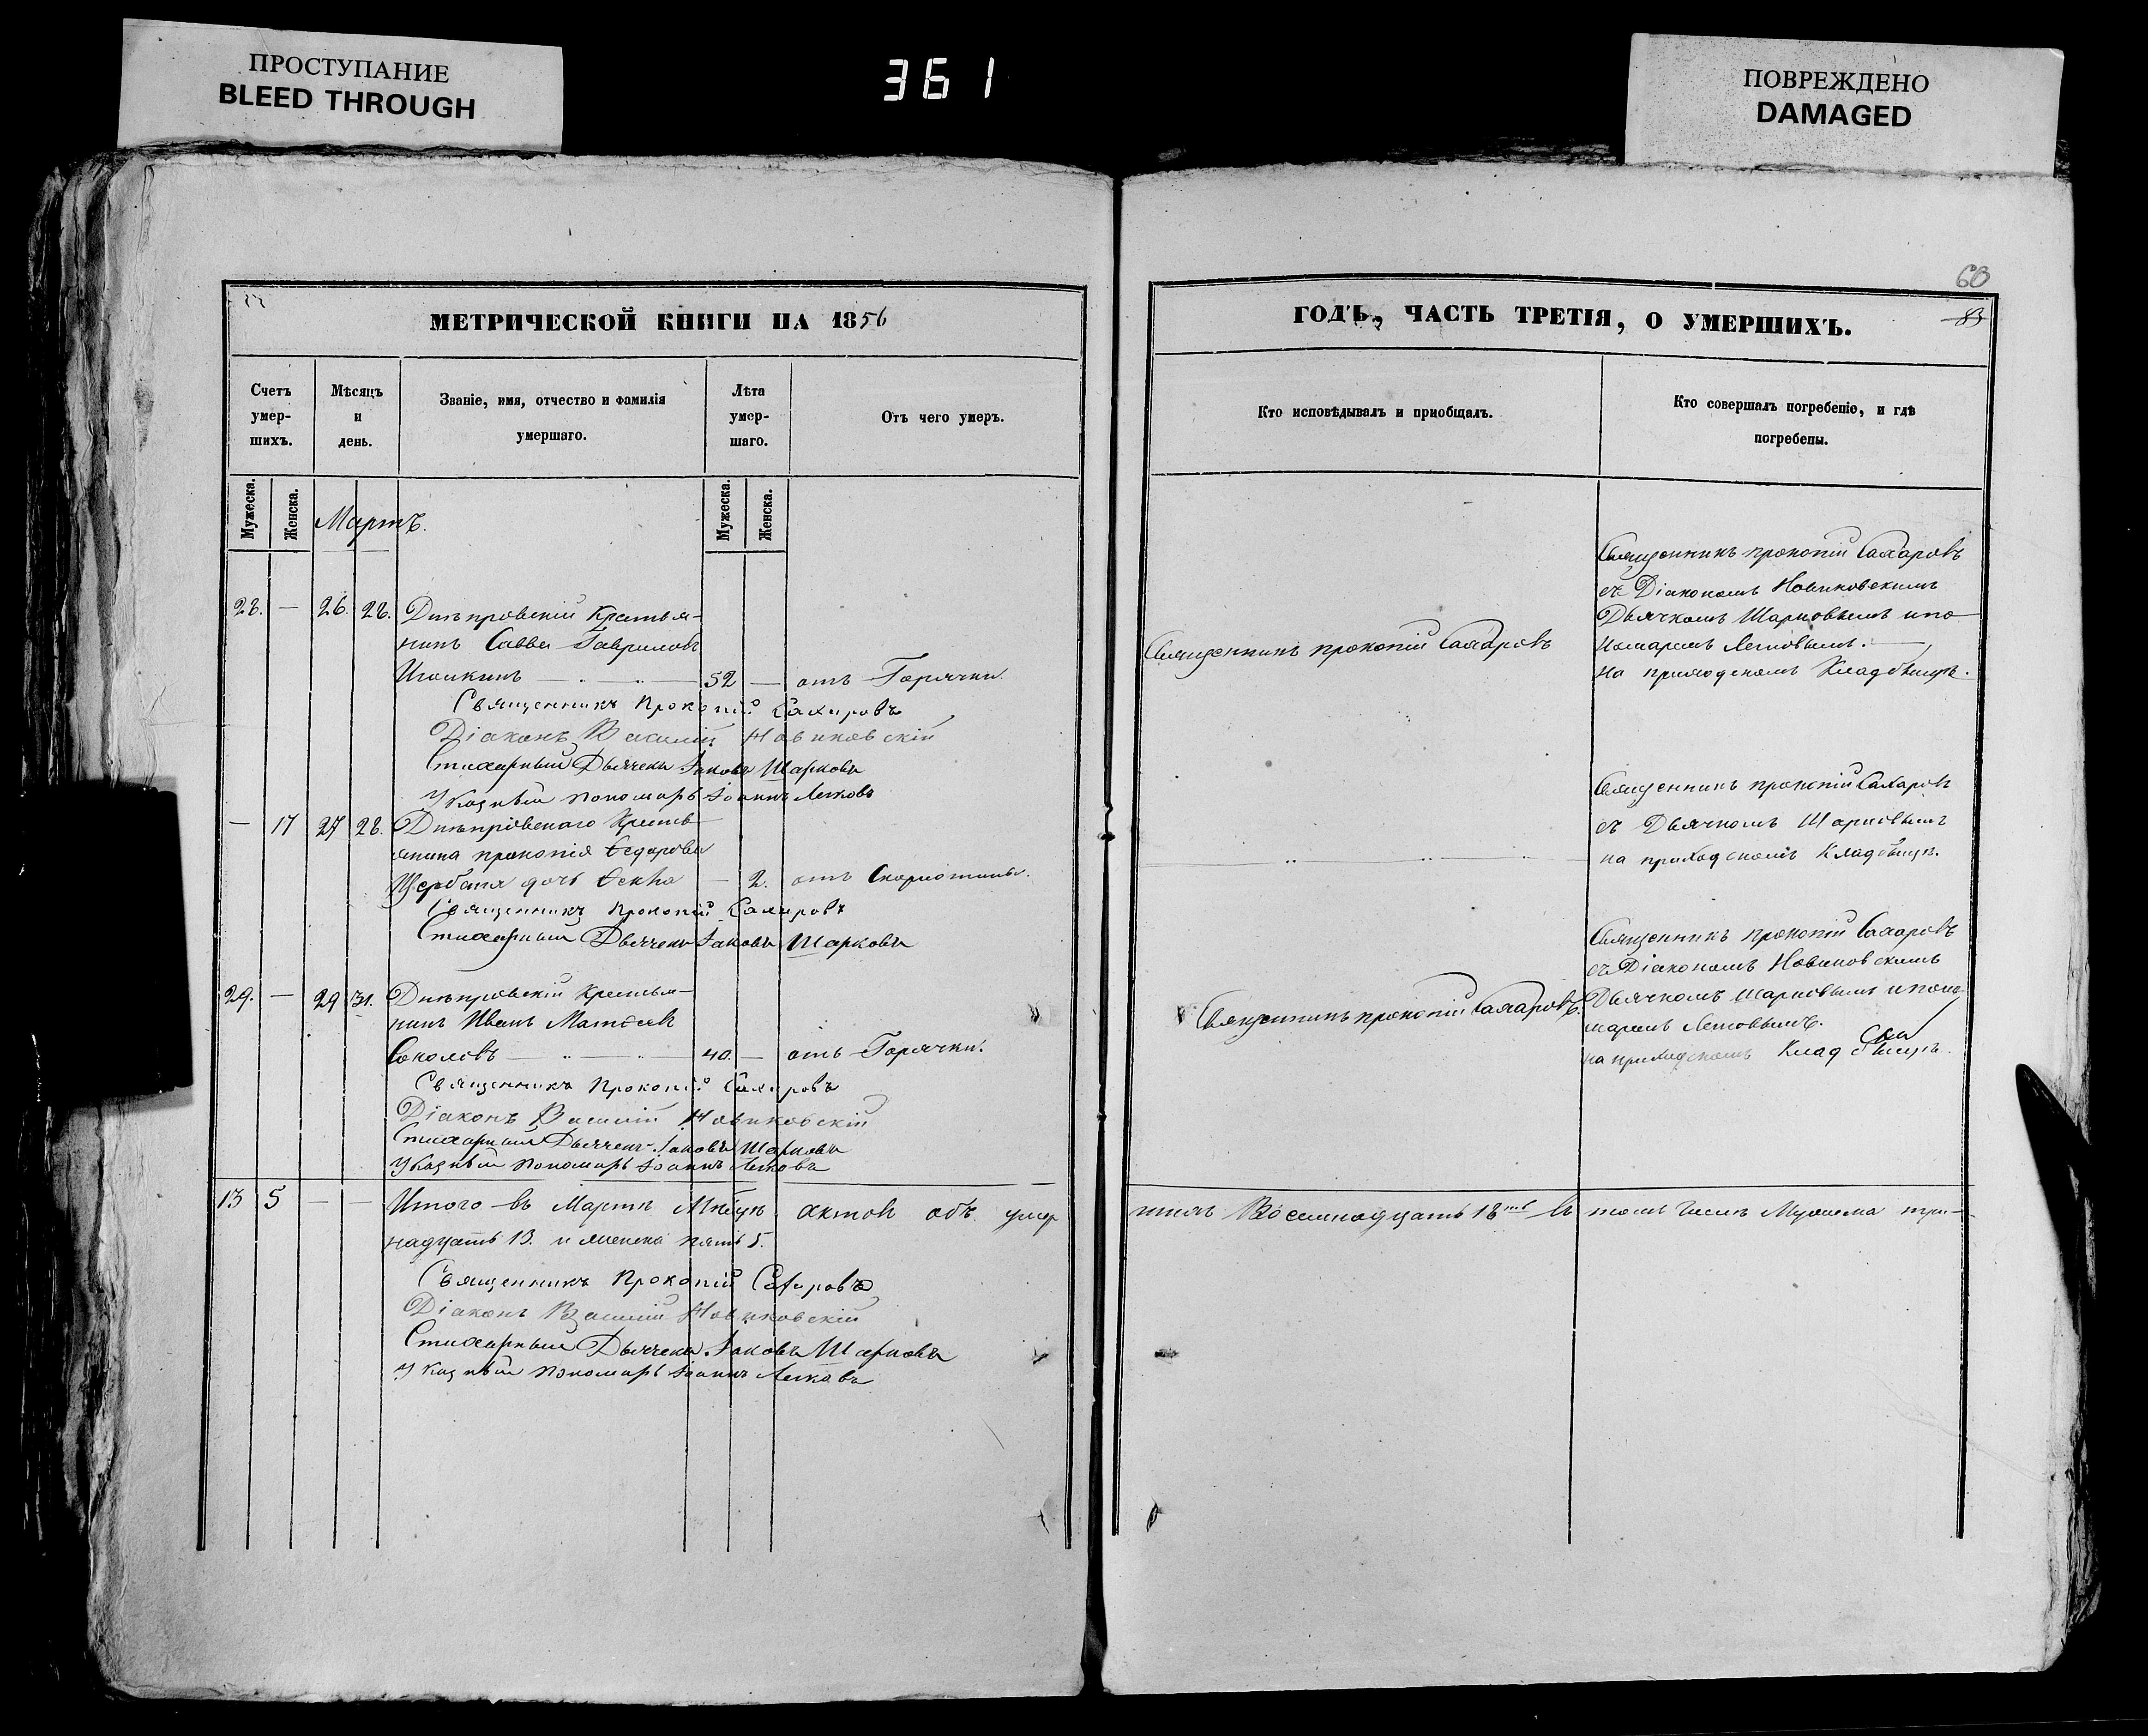 ПРОСТУПАНИЕ
BLEED THROUGH
361
ПОВРЕЖДЕНО
DAMAGED
МЕТРИЧЕСКОЙ КНИГИ НА 1856
Счетъ
умер-
шихъ.
Мѣсяцъ
и
день.
Званіе, имя, отчество и фамилія
умершаго.
Лѣта
умер-
шаго.
Отъ чего умеръ.
Мужеска.
Женска.
Мартъ.
Мужеска.
Женска.
28. — 26. 28. Днѣпровскій Крестья-
нинъ Савва Гавриловъ
52 — отъ Горячки.
Священникъ Прокопій Сахаровъ
Діаконъ Василій Новиковскій
Стихарный Дьячекъ Іаковъ Шарковъ
Указный пономарь Іоаннъ Летковъ
— 17 27 28. Днѣпровскаго Кресть-
янина прокопія Ѳедорова
дочь Ѳекла — 2. отъ
Священникъ Прокопій Сахаровъ
Стихарный Дьячекъ Іаковъ Шарковъ
29. — 29 31. Днѣпровскій Крестья-
нинъ Иванъ Матѳеевъ
Соколовъ — 40. — отъ Горячки.
Священникъ Прокопій Сахаровъ
Діаконъ Василій Новиковскій
Стихарный Дьячекъ Іаковъ Шарковъ
Указный пономарь Іоаннъ Летковъ
13 5 — — Итого въ Мартѣ Мѣсяцѣ актовъ объ умер
надцать 13. и женска пять 5.
Священникъ Прокопій Сахаровъ
Діаконъ Василій Новиковскій
Стихарный Дьячекъ Іаковъ Шарковъ
Указный пономарь Іоаннъ Летковъ
60
ГОДЪ, ЧАСТЬ ТРЕТІЯ, О УМЕРШИХЪ.
Кто исповѣдывалъ и приобщалъ.
Кто совершалъ погребеніе, и гдѣ
погребены.
Священникъ прокопій Сахаровъ
съ Діакономъ Новиковскимъ
Дьячкомъ Шарковымъ и по-
Священникъ прокопій Сахаровъ
номаремъ Летковымъ.
на приходскомъ Кладбищѣ.
Священникъ прокопій Сахаровъ
съ Дьячкомъ Шарковымъ
на приходскомъ Кладбищѣ.
Священникъ прокопій Сахаровъ
съ Діакономъ Новиковскимъ
Священникъ прокопій Сахаровъ.
Дьячкомъ Шарковымъ и поно-
маремъ Летковымъ.
на приходскомъ Кладбищѣ.
шихъ Восемнадцать 18ть въ томъ числѣ Мужеска три-